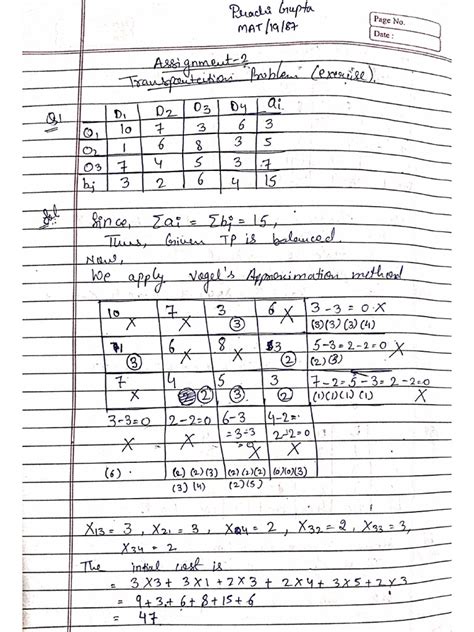 Gupta
MAT/19/87
Page No.
Date :
Assignment-2
Transportation Problem (exercise).
Q1
D1 D2 D3 D4 ai
O1 10 7 3 6 3
O2 1 6 8 3 5
O3 7 4 5 3 7
bj 3 2 6 4 15
Sol
Since, Σai = Σbj = 15,
Thus, Given TP is balanced.
Now,
We apply Vogel's Approximation method
10 7 3 6 3-3=0 X
X X (3) X (3)(3)(3)(4)
1 6 8 3 5-3=2-2=0 X
(3) X X (2) (2)(3)
7 4 5 3 7-2=5-3=2-2=0
X (2) (3) (2) (1)(1)(1)(1) X
3-3=0 2-2=0 6-3 4-2=
X X =3-3 2-2=0
=0 X X
(6) (2)(2)(3) (2)(2)(2) (0)(0)(3)
(3)(4) (2)(5)
X13 = 3, X21 = 3, X24 = 2, X32 = 2, X33 = 3,
X34 = 2
The initial cost is
= 3X3 + 3X1 + 2X3 + 2X4 + 3X5 + 2X3
= 9 + 3 + 6 + 8 + 15 + 6
= 47